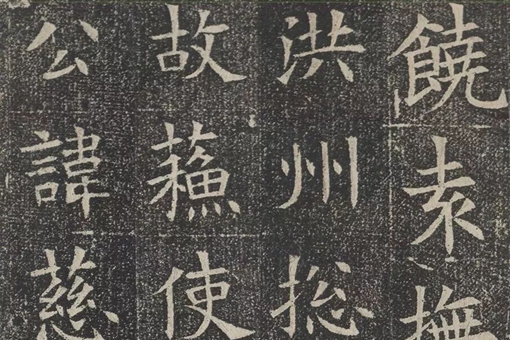 饒袁撫
洪州捴
故蘓使
公諱慈